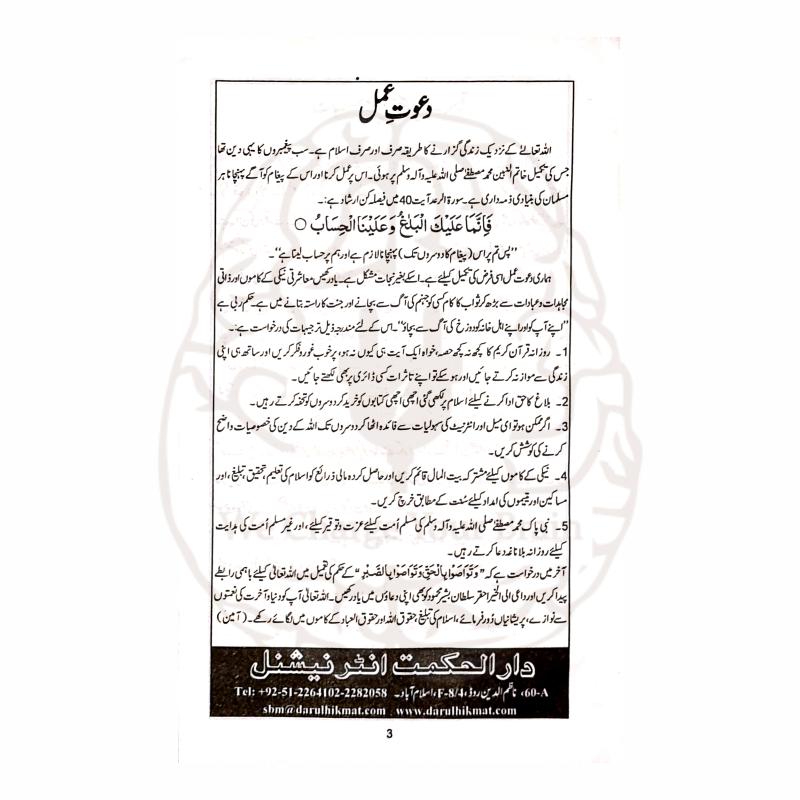 دعوتِ عمل
اللہ تعالیٰ کے نزدیک زندگی گزارنے کا طریقہ صرف اور صرف اسلام ہے۔ سب پیغمبروں کا یہی دین تھا
جس کی تکمیل خاتم النبیین محمد مصطفےٰ صلی اللہ علیہ وآلہ وسلم پر ہوئی۔ اس پر عمل کرنا اور اس کے پیغام کو آگے پہنچانا ہر
مسلمان کی بنیادی ذمہ داری ہے۔ سورۃ الرعد آیت 40 میں فیصلہ کن ارشاد ہے:۔
فَاِنَّمَا عَلَیْكَ الْبَلٰغُ وَ عَلَیْنَا الْحِسَابُ ○
"پس تم پر اس (پیغام کا دوسروں تک) پہنچانا لازم ہے اور ہم پر حساب لینا ہے"۔
ہماری دعوت عمل اسی فرض کی تکمیل کیلئے ہے۔ اسکے بغیر نجات مشکل ہے۔ یاد رکھیں معاشرتی نیکی کے کاموں اور ذاتی
مجاہدات و عبادات سے بڑھ کر ثواب کا کام کسی کو جہنم کی آگ سے بچانے اور جنت کا راستہ بتانے میں ہے۔ حکم ربی ہے
"اپنے آپ کو اور اپنے اہل خانہ کو دوزخ کی آگ سے بچاؤ"۔ اس کے لئے مندرجہ ذیل ترجیحات کی درخواست ہے:۔
1۔ روزانہ قرآن کریم کا کچھ نہ کچھ حصہ، خواہ ایک آیت ہی کیوں نہ ہو، پر خوب غور و فکر کریں اور ساتھ ہی اپنی
زندگی سے موازنہ کرتے جائیں اور ہو سکے تو اپنے تاثرات کسی ڈائری پر بھی لکھتے جائیں۔
2۔ بلاغ کا حق ادا کرنے کیلئے اسلام پر لکھی گئی اچھی اچھی کتابوں کو خرید کر دوسروں کو تحفہ کرتے رہیں۔
3۔ اگر ممکن ہو تو ای میل اور انٹرنیٹ کی سہولیات سے فائدہ اٹھا کر دوسروں تک اللہ کے دین کی خصوصیات واضح
کرنے کی کوشش کریں۔
4۔ نیکی کے کاموں کیلئے مشترکہ بیت المال قائم کریں اور حاصل کردہ مالی ذرائع کو اسلام کی تعلیم، تحقیق، تبلیغ، اور
مساکین اور یتیموں کی امداد کیلئے سُنت کے مطابق خرچ کریں۔
5۔ نبی پاک محمد مصطفےٰ صلی اللہ علیہ وآلہ وسلم کی مسلم اُمت کیلئے عزت و توقیر کیلئے، اور غیر مسلم اُمت کی ہدایت
کیلئے روزانہ بلاناغہ دعا کرتے رہیں۔
آخر میں درخواست ہے کہ "وَتَوَاصَوْا بِالْحَقِّ وَتَوَاصَوْا بِالصَّبْرِ" کے حکم کی تعمیل میں اللہ تعالیٰ کیلئے باہمی رابطے
پیدا کریں اور داعی الی الخیر احقر سلطان بشیر محمود کو بھی اپنی دعاؤں میں یاد رکھیں۔ اللہ تعالیٰ آپ کو دنیا و آخرت کی نعمتوں
سے نوازے، پریشانیاں دُور فرمائے، اسلام کی تبلیغ، حقوق اللہ اور حقوق العباد کے کاموں میں لگائے رکھے۔ (آمین)
دارالحکمت انٹرنیشنل
60-A، ناظم الدین روڈ، F-8/4، اسلام آباد۔ Tel: +92-51-2264102-2282058
sbm@darulhikmat.com www.darulhikmat.com
3